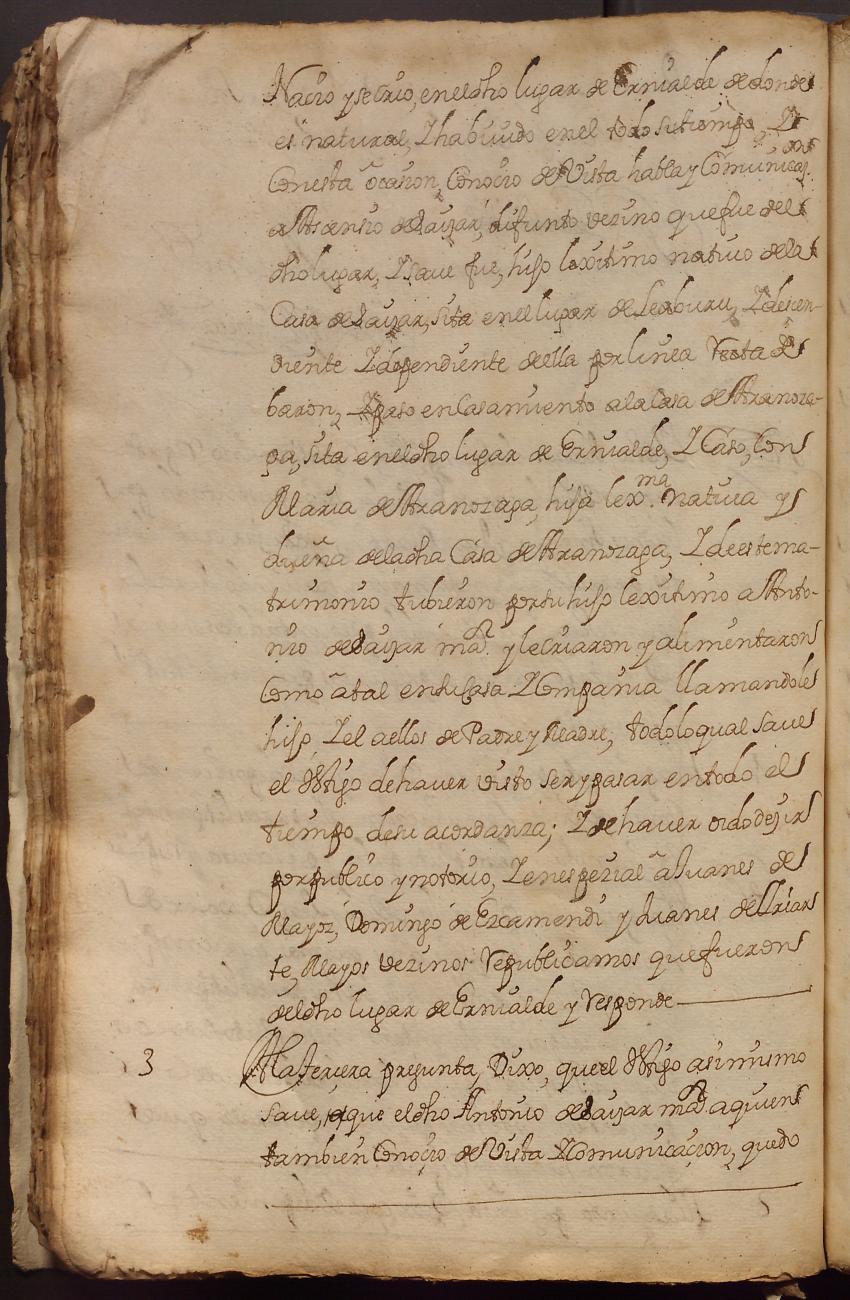 Nacio y se crio, en el dho lugar de Ernialde de donde
es natural, Y ha biuido en el todo su tiempo, Y
Con esta ocasion, Conocio de Vista habla y Comunicaⁿ
a Ascensio de Lauyar, difunto vezino que fue del
dho lugar, Y saue fue, hijo lexitimo natiuo de la
Casa de Lauyar, sita en el lugar de Leaburu, Y descen-
diente Y dependiente de ella por linea Recta de
baron, Y paso en Casamiento a la Casa de Aranoza-
ga, sita en el dho lugar de Ernialde, Y Caso, Con
Maria de Aranozaga, hija lexᵐᵃ natiua y
dueña de la dha Casa de Aranozaga, Y de este ma-
trimonio tubieron por su hijo lexitimo a Anto-
nio de Lauyar maᵒʳ y le Criaron y alimentaron
Como a tal en su Casa Y Compañia llamandole
hijo Y el a ellos de Padre y Madre, todo lo qual saue
el testigo de hauer visto ser y pasar en todo el
tiempo de su acordanza; Y de hauer oido dezir
por publico y notorio, Y en espezial a Juanes de
Mayoz, Domingo de Ezcamendi y Juanes de Yriar
te, Mayos vezinos Republicanos que fueron
del dho lugar de Ernialde y Responde
3 A la terzera pregunta, Dixo, que el testigo asimismo
saue, que el dho Antonio de Lauyar maᵒʳ a quien
tambien Conocio de Vista Y Comunicacion, quedo